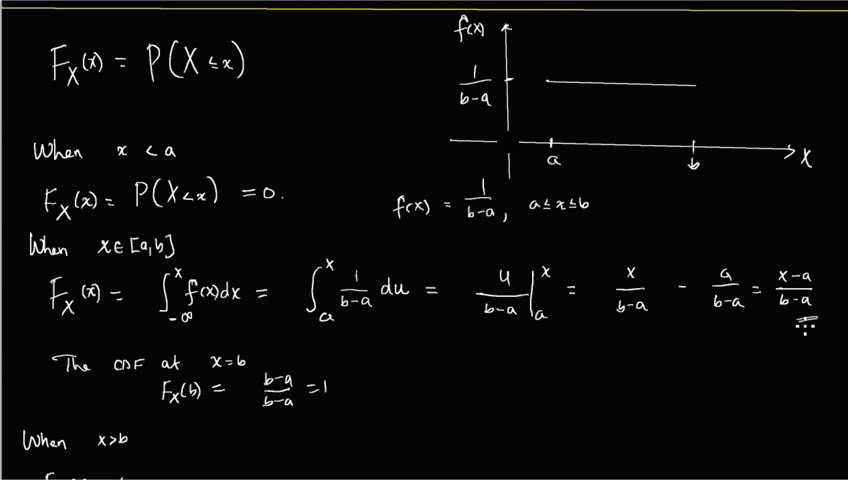 F_X(x) = P(X ≤ x)
f(x)
1/(b-a)
a b x
When x < a
F_X(x) = P(X<x) = 0.
f(x) = 1/(b-a), a ≤ x ≤ b
When x ∈ [a,b]
F_X(x) = ∫_{-∞}^{x} f(x)dx = ∫_{a}^{x} 1/(b-a) du = u/(b-a) |_{a}^{x} = x/(b-a) - a/(b-a) = (x-a)/(b-a)
The CDF at x=b
F_X(b) = (b-a)/(b-a) = 1
When x>b